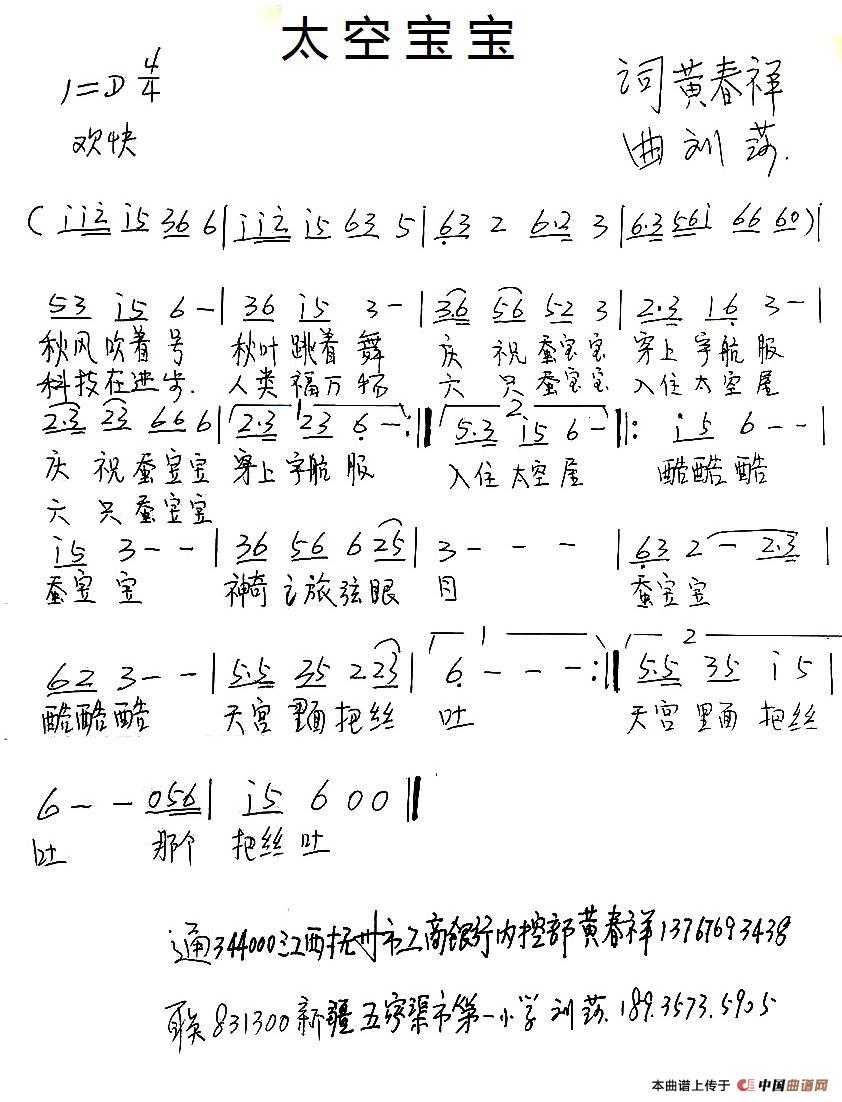 太空宝宝
1=D 4/4
词 黄春祥
欢快
曲 刘莎.
( i i 2 i 5 3 6 6 | i i 2 i 5 6 3 5 | 6 3 2 6·2 3 | 6·3 5 6 i 6 6 6 0 ) |
5 3 i 5 6 - | 3 6 i 5 3 - | 3·6 5 6 5 2 3 | 2·3 1 6 3 - |
秋风吹着号 秋叶跳着舞 庆祝蚕宝宝 穿上宇航服
科技在进步. 人类福万 六只蚕宝宝 入住太空屋
2·3 2 3 6 6 6 | 1 2·3 2 3 6 - :‖ 2 5·3 i 5 6 - ‖: i 5 6 - - |
庆祝蚕宝宝 穿上宇航服 入住太空屋 酷酷酷
六只蚕宝宝
i 5 3 - - | 3 6 5 6 6 2 5 | 3 - - - | 6 3 2 - 2·3 |
蚕宝宝 神奇之旅弦眼目 蚕宝宝
6 2 3 - - | 5·5 3 5 2 2 3 | 1 6 - - - :‖ 2 5·5 3 5 i 5 |
酷酷酷 天宫里面把丝吐 天宫里面把丝
6 - - 0 5 6 | i 5 6 0 0 ‖
吐 那个 把丝吐
通344000江西抚州市工商银行内控部黄春祥13767693438
联831300新疆五字渠市第一小学 刘莎.189.3573.5905
本曲谱上传于 中国曲谱网